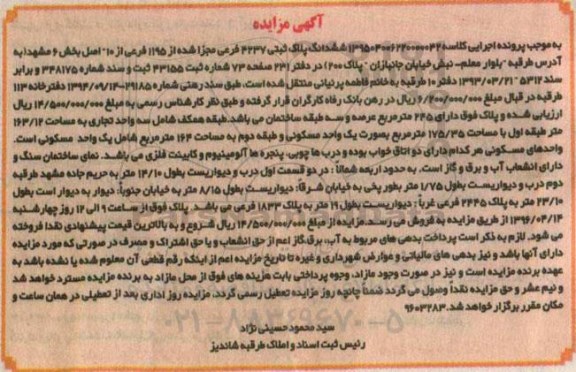 آگهی مزایده
به موجب پرونده اجرایی کلاسه ۱۳۹۵۰۴۰۰۶۲۲۰۰۰۰۰۴۲ ششدانگ پلاک ثبتی ۴۲۳۷ فرعی مجزا شده از ۱۱۹۵ فرعی از ۱۰- اصل بخش ۶ مشهد(به
آدرس طرقبه -بلوار معلم- نبش خیابان جانبازان - پلاک ۲۰۰) در دفتر ۲۳۱ صفحه ۷۳ شماره ثبت ۴۳۱۵۵ ثبت و سند شماره ۳۴۸۱۷۵ و برابر
سند ۵۳۱۲ - ۱۳۹۳/۰۳/۲۱ دفتر ۱۰ طرقبه به خانم فاطمه پرنیانی منتقل شده است، طبق سند رهنی شماره ۲۹۱۸۵-۱۳۹۴/۰۹/۱۴ دفترخانه ۱۱۳
طرقبه در قبال مبلغ ۶/۲۰۰/۰۰۰/۰۰۰ ریال در رهن بانک رفاه کارگران قرار گرفته و طبق نظر کارشناس رسمی به مبلغ ۱۴/۵۰۰/۰۰۰/۰۰۰ ریال
ارزیابی شده و پلاک فوق دارای ۲۴۵ مترمربع عرصه و سه طبقه ساختمان می باشد.طبقه همکف شامل سه واحد تجاری به مساحت ۱۶۳/۱۲
متر طبقه اول با مساحت ۱۷۵/۳۵ مترمربع بصورت یک واحد مسکونی و طبقه دوم به مساحت ۱۶۴ مترمربع شامل یک واحد مسکونی است.
واحدهای مسکونی هر کدام دارای دو اتاق خواب بوده و درب ها چوبی، پنجره ها آلومینیوم و کابینت فلزی می باشد. نمای ساختمان سنگ و
دارای انشعاب آب و برق و گاز است. به حدود اربعه شمالاً : در دو قسمت اول درب و دیواریست بطول ۱۴/۱۰ متر به حریم جاده مشهد طرقبه
دوم درب و دیواریست بطول ۱/۷۵ متر بطور پخی به خیابان شرقاً: دیواریست بطول ۸/۱۵ متر به خیابان جنوباً: دیوار به دیوار است بطول
۲۳/۱۰ متر به پلاک ۲۲۴۵ فرعی غرباً : دیواریست بطول ۱۹ متر به پلاک ۱۸۳۳ فرعی می باشد. پلاک فوق از ساعت ۹ الی ۱۲ روز چهارشنبه
۱۳۹۶/۰۴/۱۴ از طریق مزایده به فروش می رسد.مزایده از مبلغ ۱۴/۵۰۰/۰۰۰/۰۰۰ ریال شروع و به بالاترین قیمت پیشنهادی نقدا فروخته
می شود. لازم به ذکر است پرداخت بدهی های مربوط به آب، برق،گاز اعم از حق انشعاب و یا حق اشتراک و مصرف در صورتی که مورد مزایده
دارای آنها باشد و نیز بدهی های مالیاتی و عوارض شهرداری و غیره تا تاریخ مزایده اعم از اینکه رقم قطعی آن معلوم شده یا نشده باشد به
عهده برنده مزایده است و نیز در صورت وجود مازاد، وجوه پرداختی بابت هزینه های فوق از محل مازاد به برنده مزایده مسترد خواهد شد
و نیم عشر و حق مزایده نقداً وصول می گردد ضمناً چنانچه روز مزایده تعطیل رسمی گردد، مزایده روز اداری بعد از تعطیلی در همان ساعت و
مکان مقرر برگزار خواهد شد.۹۶۰۳۲۸۳
سید محمود حسینی نژاد
رئیس ثبت اسناد و املاک طرقبه شاندیز
۰۲۱-۸۸۳۴۹۶۷۰-۵